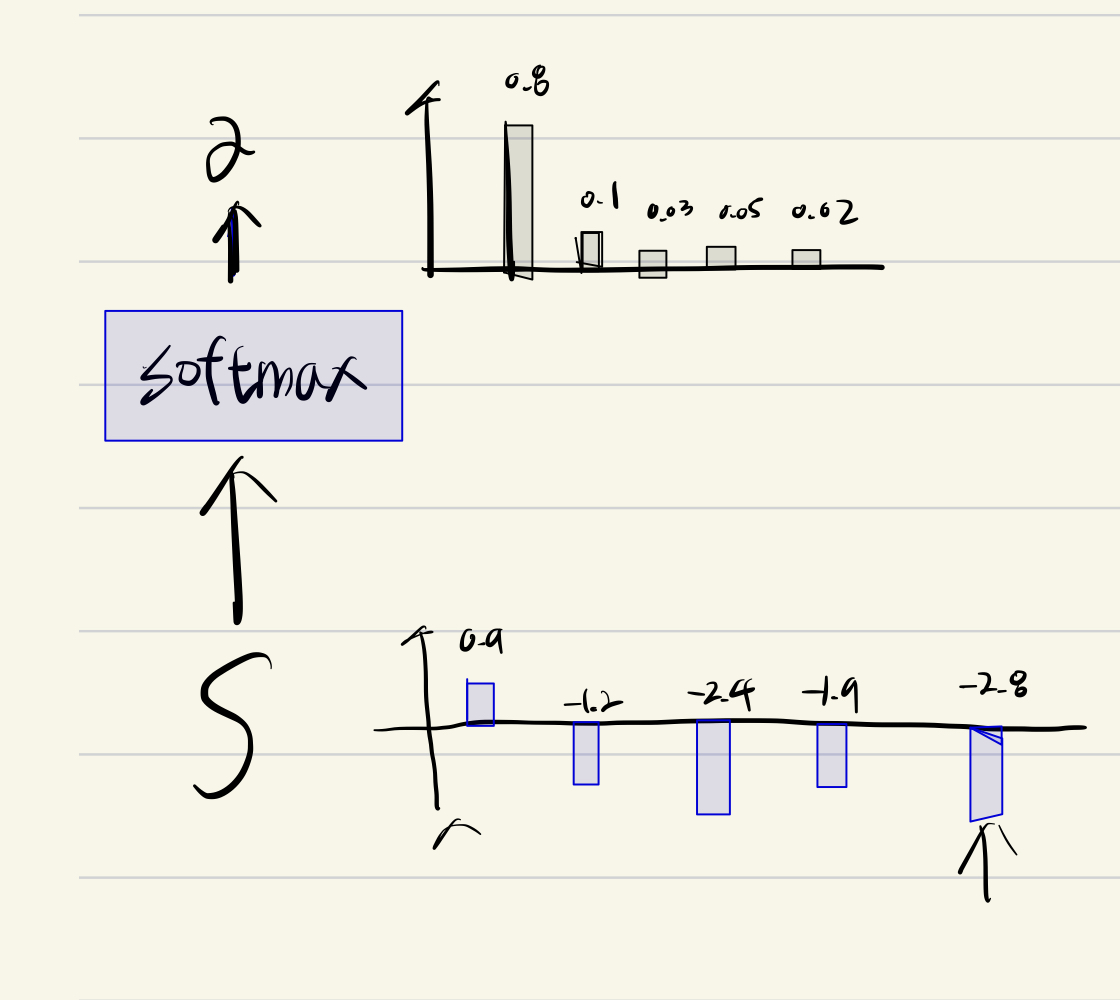 0.8
a
0.1 0.03 0.05 0.02
softmax
S
0.9 -1.2 -2.4 -1.9 -2.8